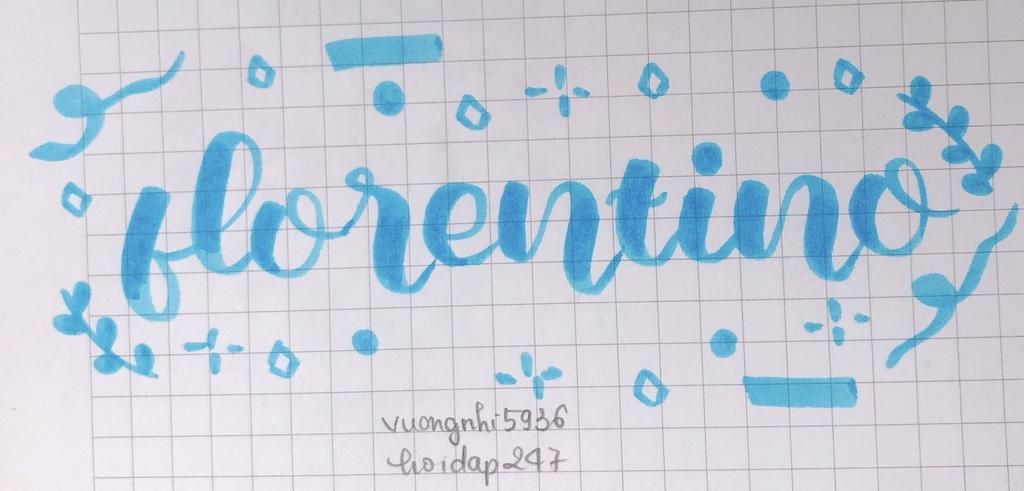 florentino
vuongnhi5936
hoidap247